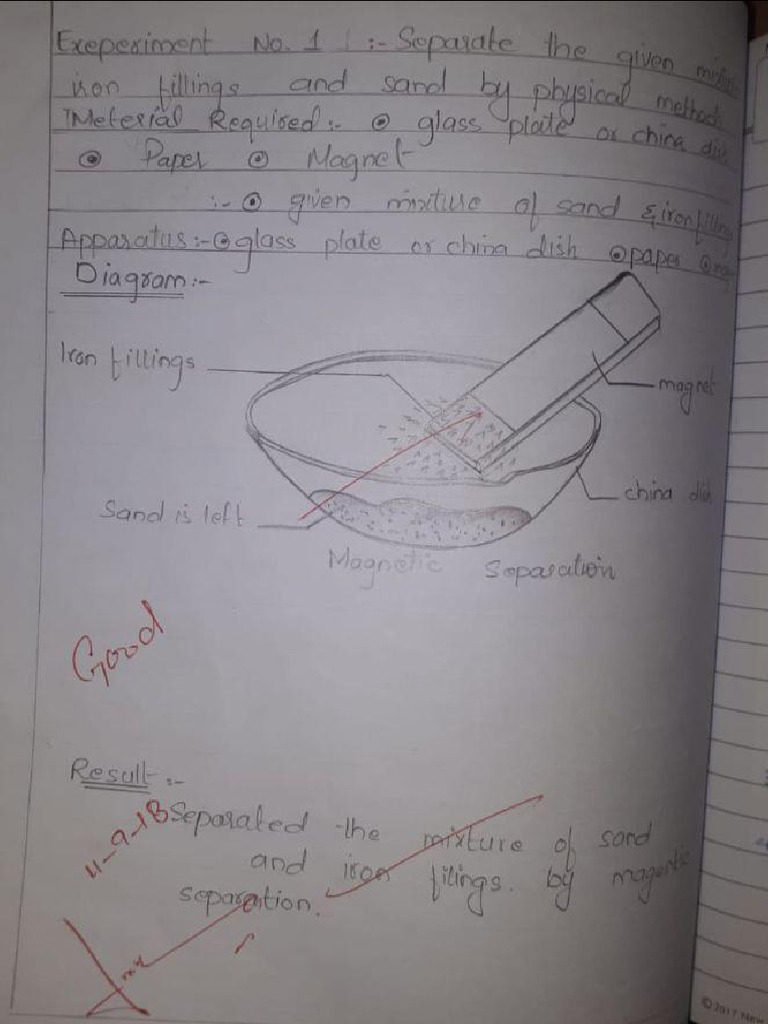 Exeperiment No. 1 :- Separate the given
iron fillings and sand by physical method
Meterial Required:- ⊙ glass plate or china dish
⊙ Paper ⊙ Magnet
:- ⊙ given mixture of sand & iron filling
Apparatus:- ⊙ glass plate or china dish ⊙ paper ⊙
Diagram:-
Iron fillings
magnet
china dish
Sand is left
Magnetic Separation
Good
Result:-
11-9-18
Separated the mixture of sand
and iron filings. by magentic
separation.
©2017